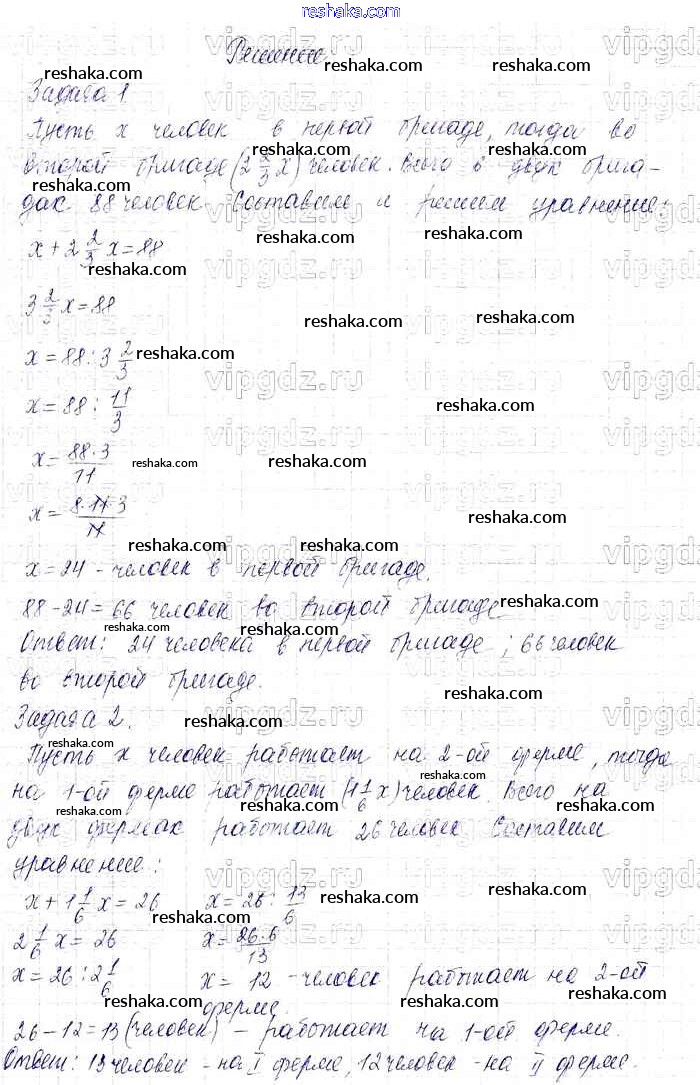 reshaka.com
Решение
reshaka.com
reshaka.com
Задача 1
Пусть x человек в первой бригаде, тогда во
второй бригаде (2 2/3 x) человек. Всего в двух брига-
reshaka.com
reshaka.com
дах 88 человек. Составим и решим уравнение:
x + 2 2/3 x = 88
reshaka.com
reshaka.com
3 2/3 x = 88
reshaka.com
x = 88 : 3 2/3
reshaka.com
x = 88 : 11/3
reshaka.com
x = 88·3/11
reshaka.com
reshaka.com
x = 8·11·3/11
reshaka.com
reshaka.com
x = 24 - человек в первой бригаде.
reshaka.com
88 - 24 = 66 человек во второй бригаде
reshaka.com
reshaka.com
Ответ: 24 человека в первой бригаде; 66 человек
во второй бригаде.
reshaka.com
Задача 2.
reshaka.com
reshaka.com
Пусть x человек работает на 2-ой ферме, тогда
на 1-ой ферме работает (1 1/6 x) человек. Всего на
reshaka.com
reshaka.com
reshaka.com
двух фермах работает 26 человек Составим
уравнение:
reshaka.com
x + 1 1/6 x = 26 x = 26 : 13/6
reshaka.com
reshaka.com
2 1/6 x = 26 x = 26·6/13
reshaka.com
x = 26 : 2 1/6 x = 12 - человек работает на 2-ой
reshaka.com
reshaka.com
ферме.
26 - 12 = 13 (человек) - работает на 1-ой ферме.
reshaka.com
Ответ: 13 человек - на I ферме, 12 человек - на II ферме.
reshaka.com
vipgdz.ru